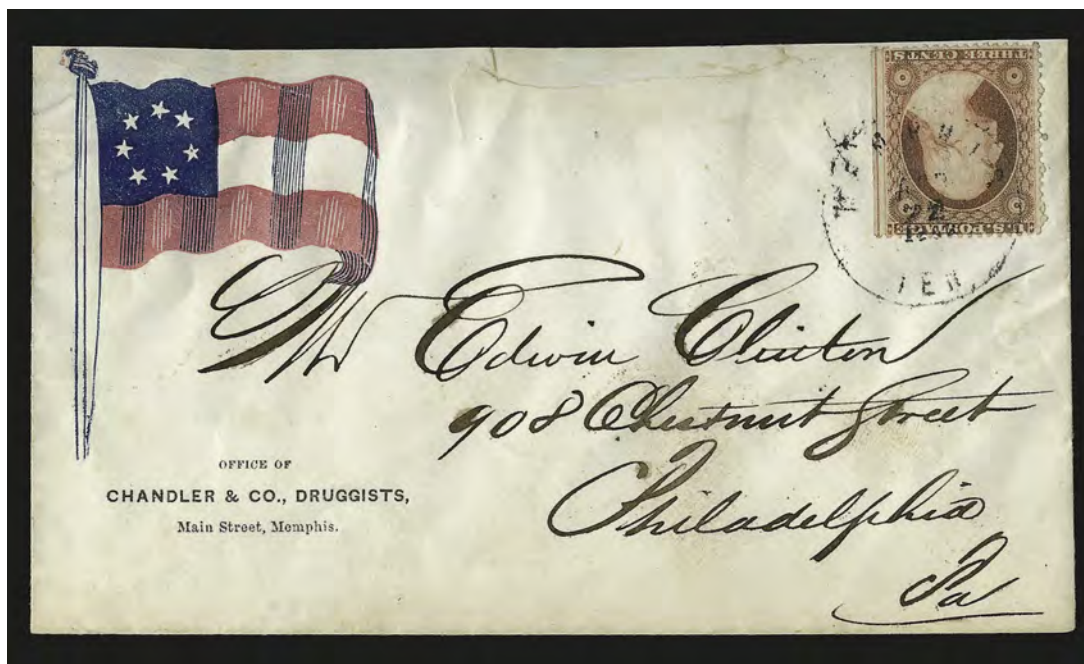 THREE CENTS
U.S. POSTAGE
22
TEN.
Mr Edwin Clinton
908 Chestnut Street
Philadelphia
Pa
OFFICE OF
CHANDLER & CO., DRUGGISTS,
Main Street, Memphis.